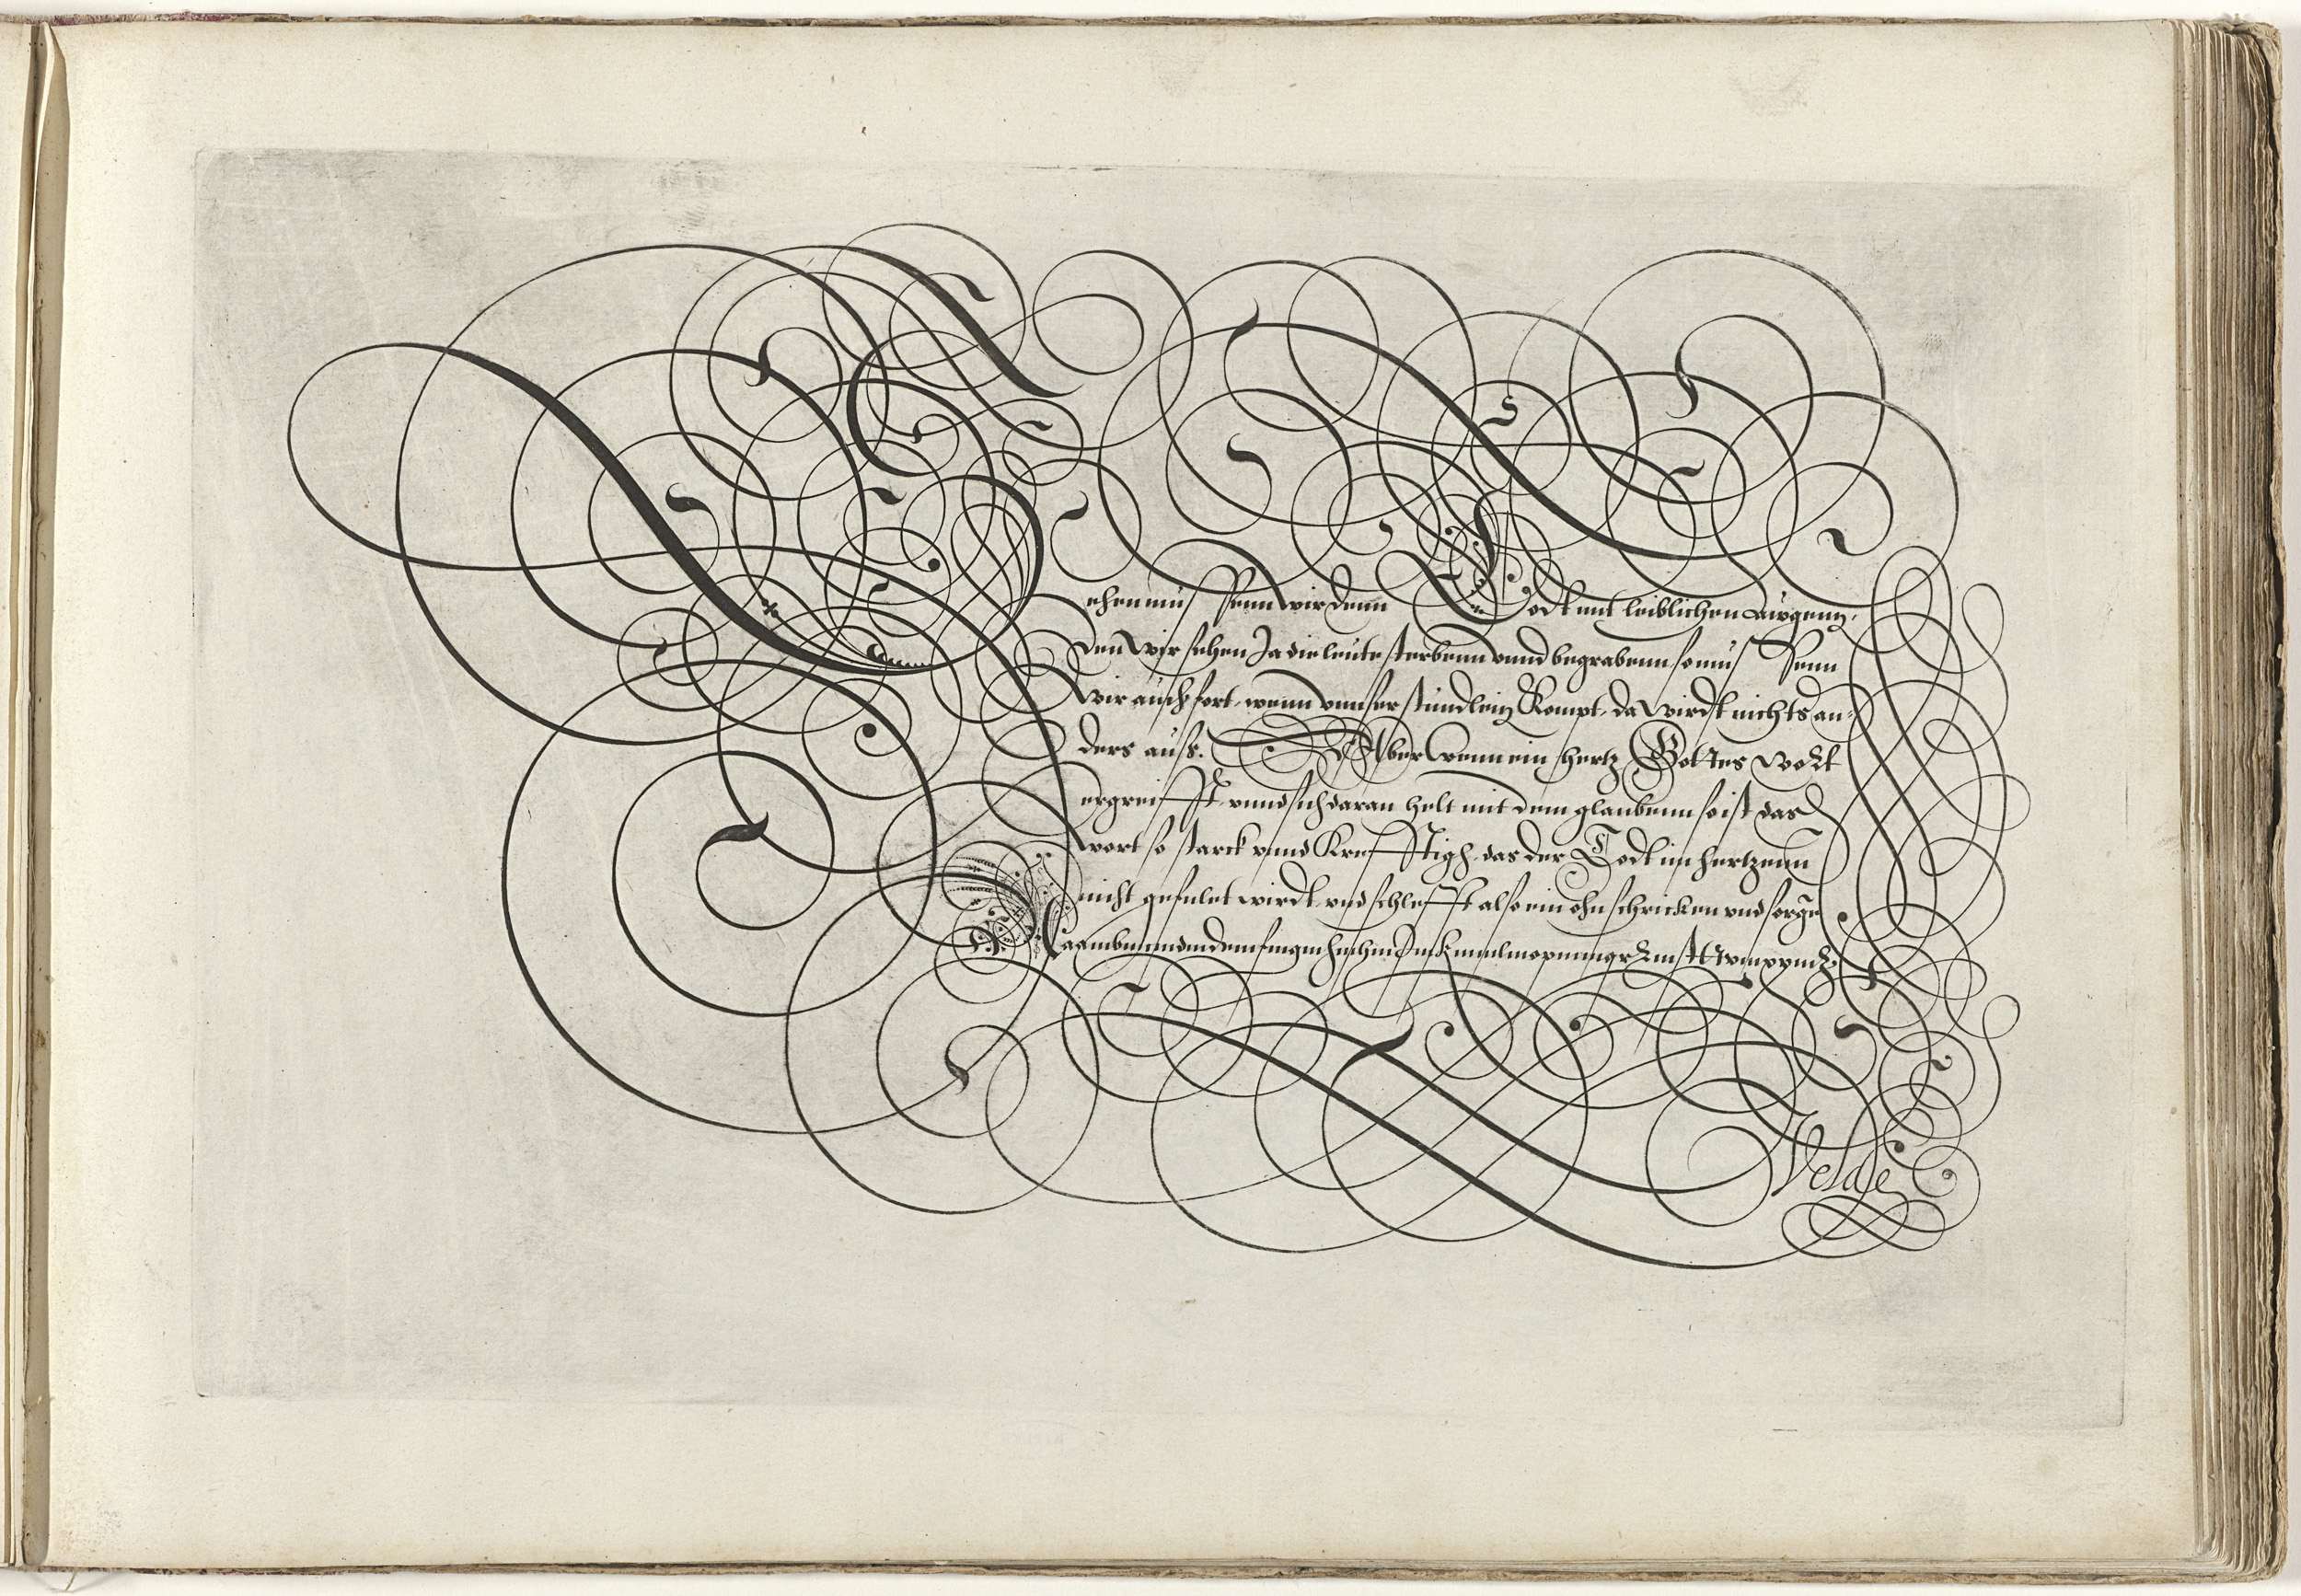 Sehen müssenn wir denn Todt mit leiblichen augenn,
den wir sehen Ja die leute sterbenn vnnd begrabenn so müssenn
wir auch fort, wenn vnnser stundlein Kompt, da wirdt nichts an-
ders auss. Aber wenn ein hertz Gottes wort
ergreifft vnnd sich daran helt mit dem glaubenn so ist das
wort so starck vnnd Krefftigh das der Todt im hertzenn
nicht gefület wirdt vnd schlefft also ein ohn schricken vnd sorge
Velde